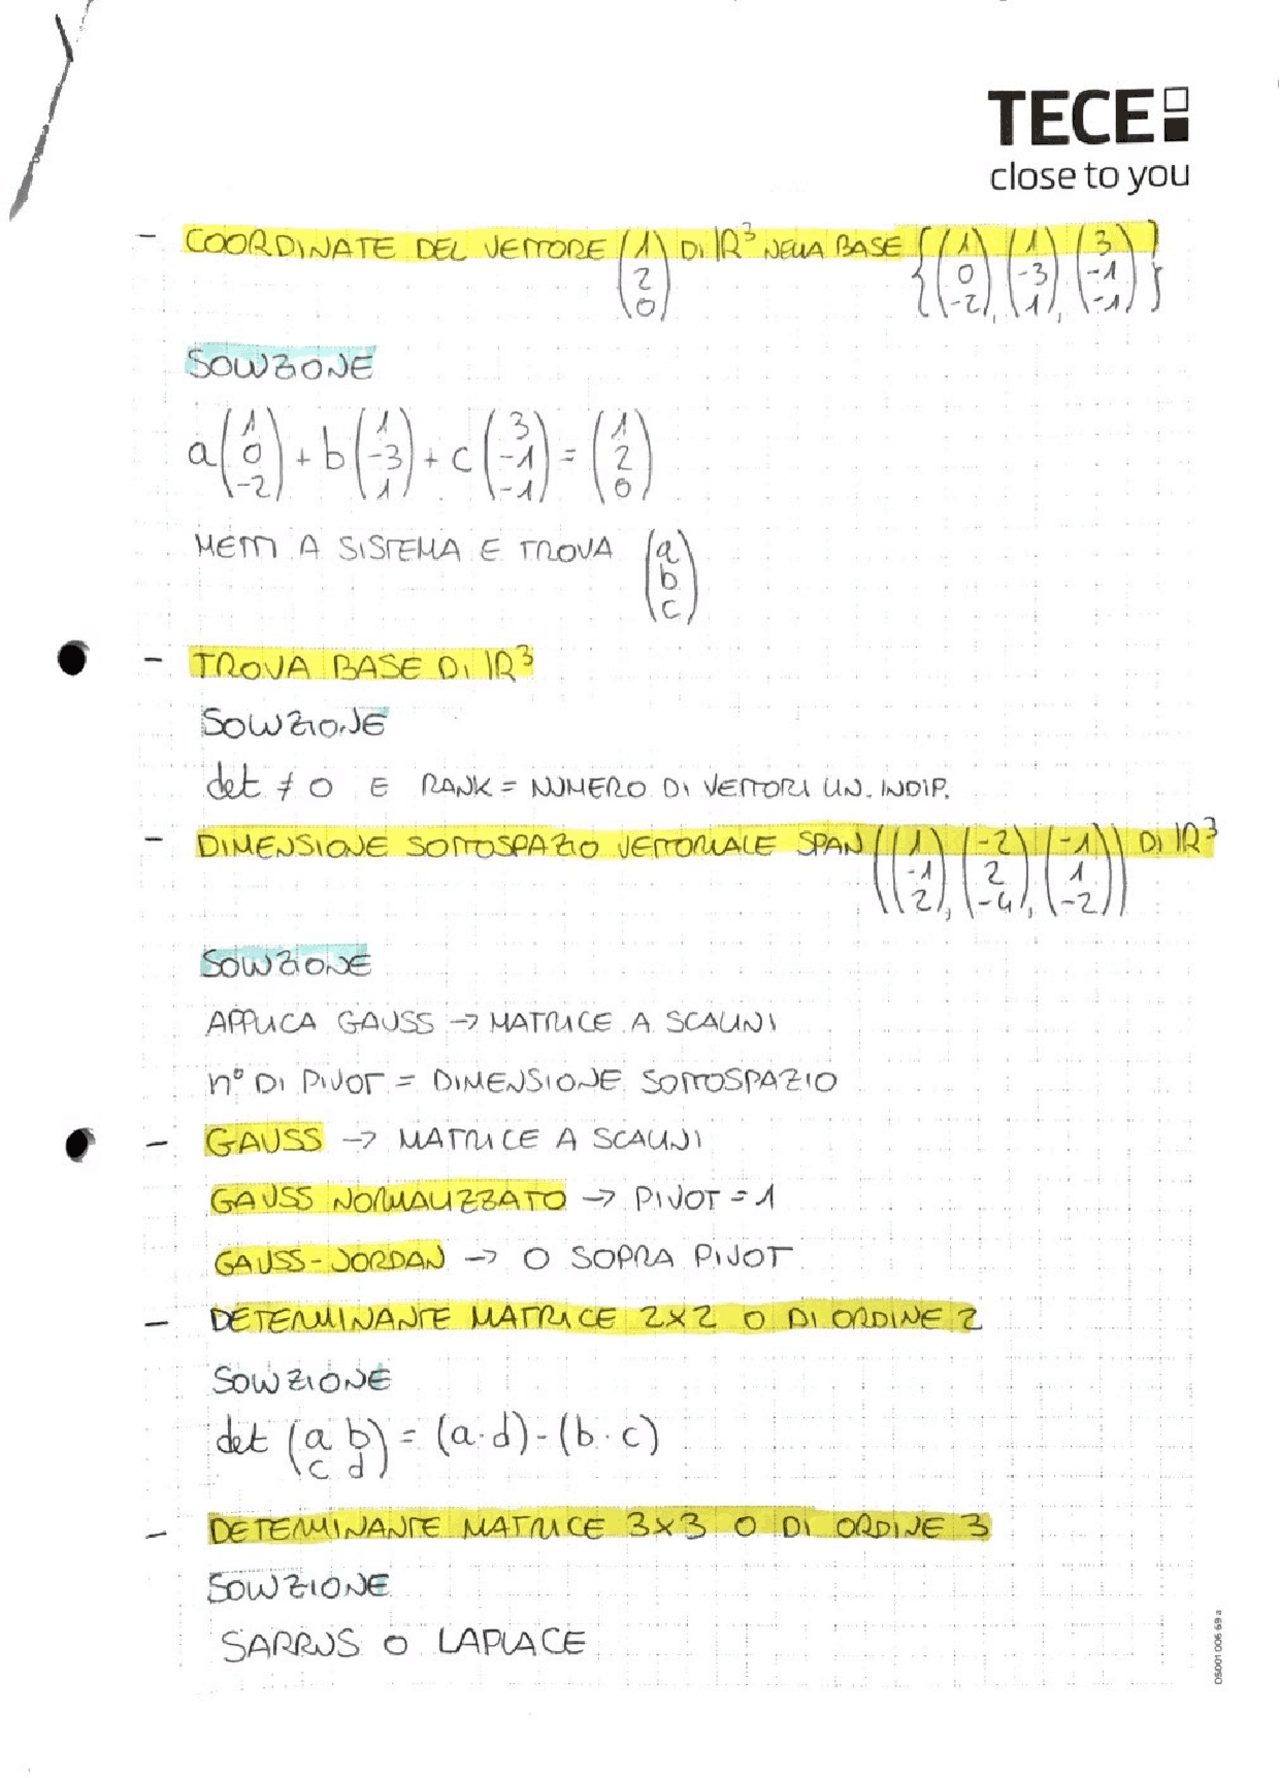 TECE
close to you
- COORDINATE DEL VETTORE (1 2 0) DI ℝ³ NELLA BASE {(1 0 -2), (1 -3 1), (3 -1 -1)}
SOLUZIONE
a(1 0 -2) + b(1 -3 1) + c(3 -1 -1) = (1 2 0)
METTI A SISTEMA E TROVA (a b c)
- TROVA BASE DI ℝ³
SOLUZIONE
det ≠ 0 E RANK = NUMERO DI VETTORI LIN. INDIP.
- DIMENSIONE SOTTOSPAZIO VETTORIALE SPAN((1 -1 2), (-2 2 -4), (-1 1 -2)) DI ℝ³
SOLUZIONE
APPLICA GAUSS → MATRICE A SCALINI
n° DI PIVOT = DIMENSIONE SOTTOSPAZIO
- GAUSS → MATRICE A SCALINI
GAUSS NORMALIZZATO → PIVOT = 1
GAUSS-JORDAN → 0 SOPRA PIVOT
- DETERMINANTE MATRICE 2x2 O DI ORDINE 2
SOLUZIONE
det (a b c d) = (a·d) - (b·c)
- DETERMINANTE MATRICE 3x3 O DI ORDINE 3
SOLUZIONE
SARRUS O LAPLACE
DS001 006 69 a